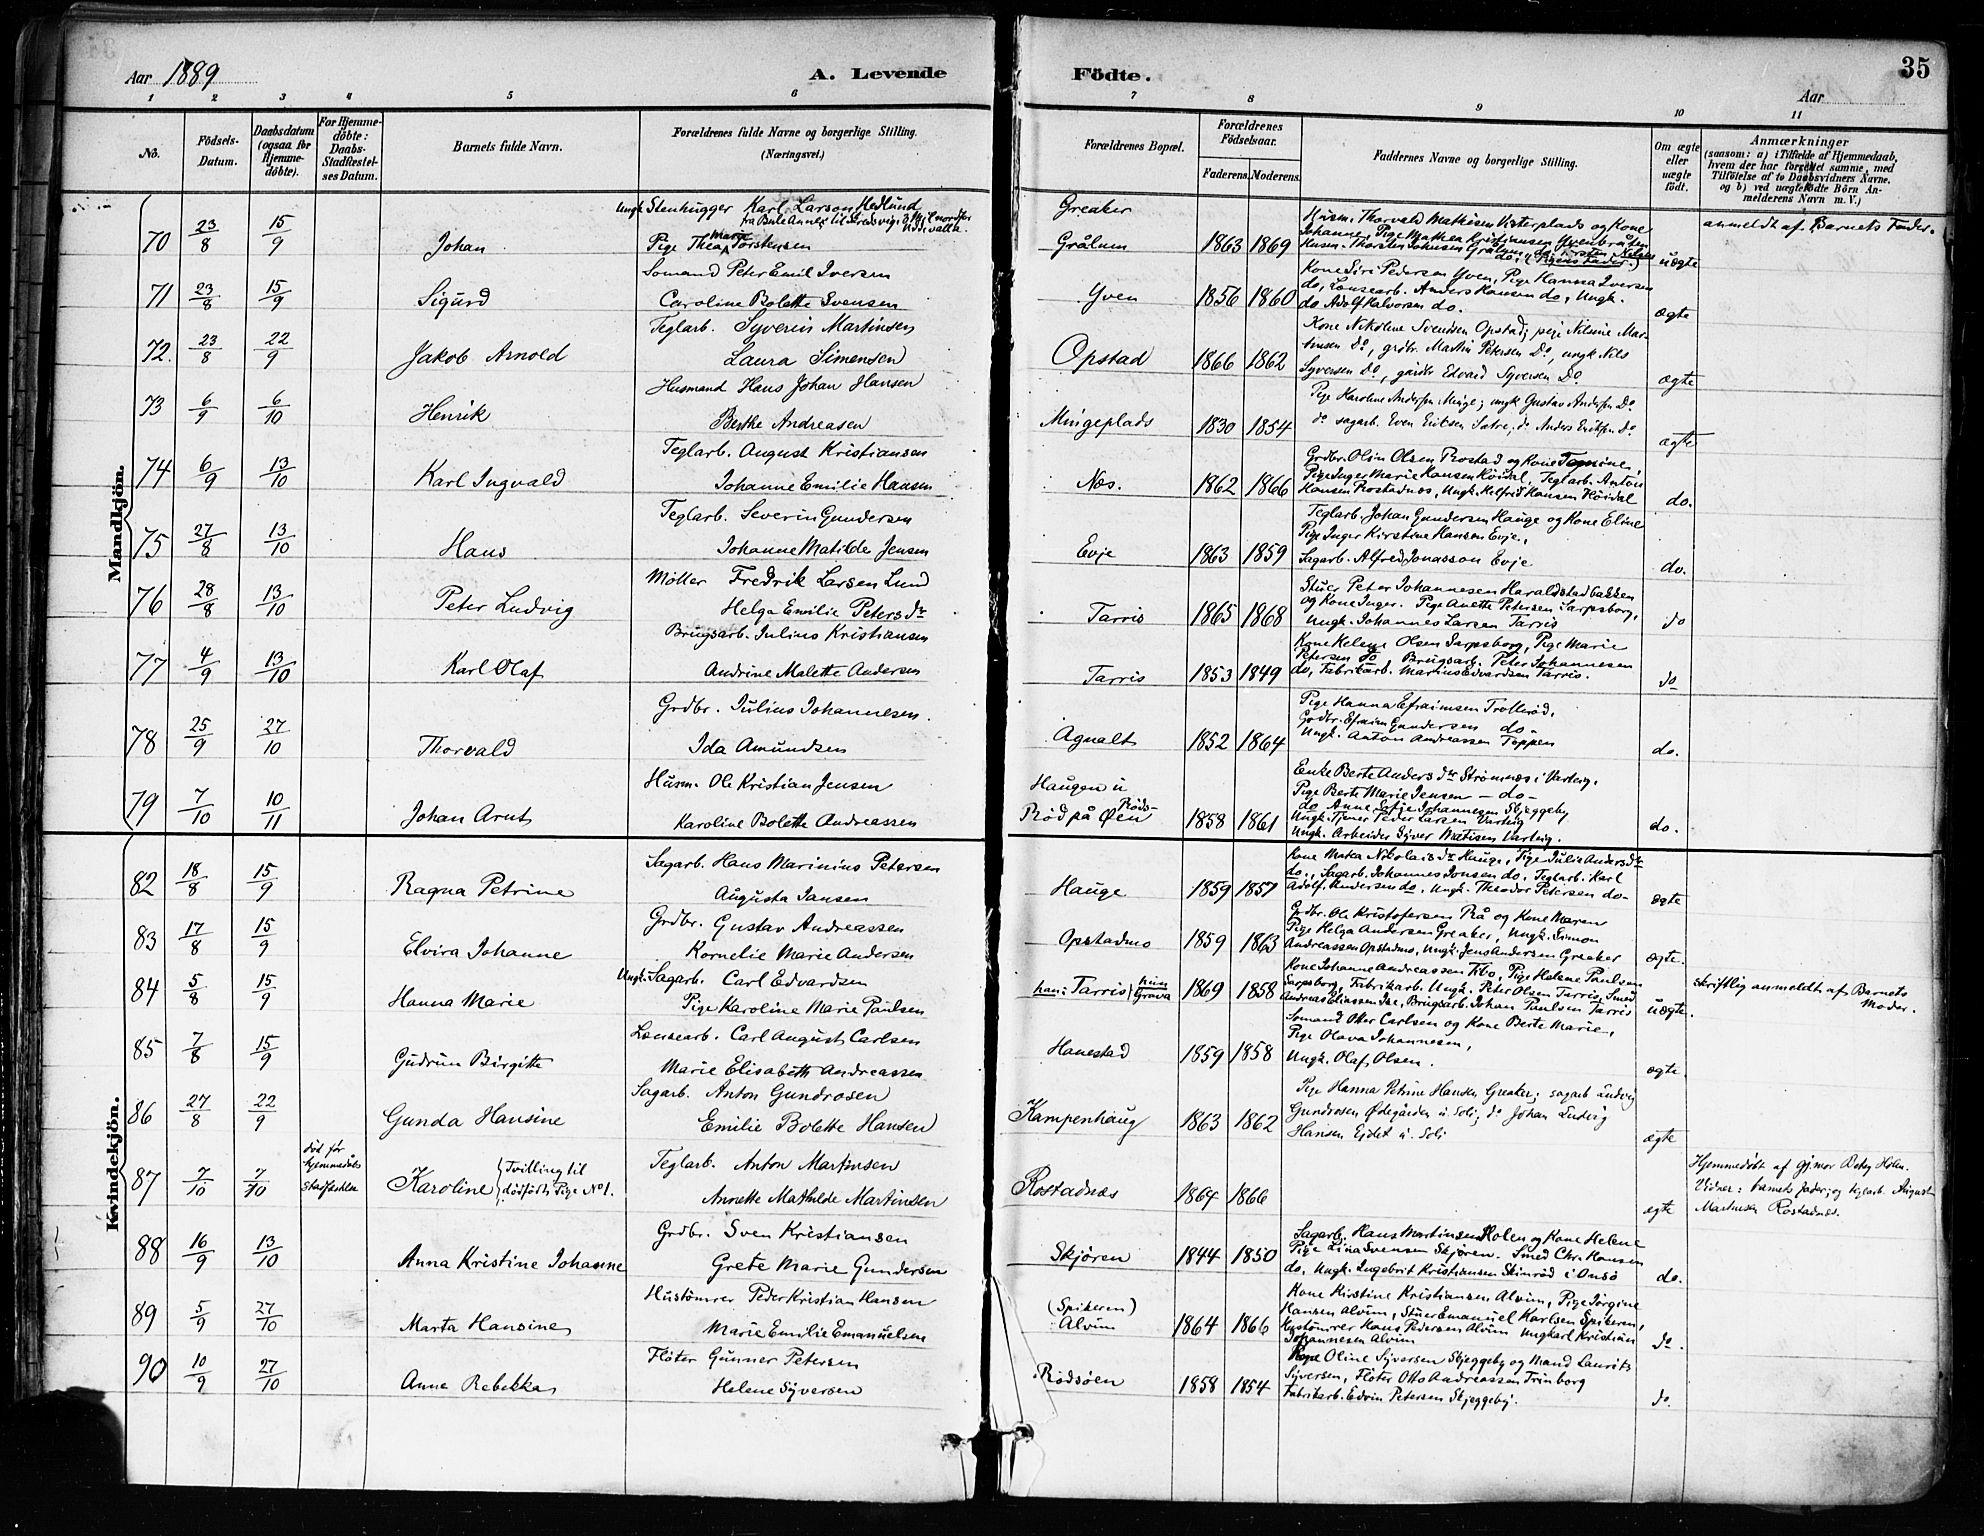 Aar 1889
A. Levende
Födte.
Aar
35
1 2 3 4 5 6 7 8 9 10 11
No.
Födsels-Datum.
Daabsdatum (ogsaa for Hjemme-döbte).
For Hjemme-döbte: Daabs-Stadfæstel-ses Datum.
Barnets fulde Navn.
Forældrenes fulde Navne og borgerlige Stilling. (Næringsvei.)
Forældrenes Bopæl.
Forældrenes Födselsaar.
Faderens. Moderens.
Faddernes Navne og borgerlige Stilling.
Om ægte eller uægte födt.
Anmærkninger
(saasom: a) i Tilfælde af Hjemmedaab, hvem der har forrettet samme, med Tilföielse af to Daabsvidners Navne. og b) ved uægtefödte Börn An-melderens Navn m. V.)
Mandkjön.
70 23/8 15/9 Johan
Ungk. Stenhugger Karl Larson Hedlund
Pige Thea Marie Torstensen
Greaker
Grålum 1863 1869
Johanne, Pige Mathea Kristiansen Yvenbråten
uægte
anmeldt af Barnets Fader.
71 23/8 15/9 Sigurd
Sömand Peter Emil Iversen
Caroline Bolette Svensen
Yven 1856 1860
Kone Siri Pedersen Yven, Pige Hanna Iversen
do, Lænsearb. Anders Hansen do, Ungk.
do Adolf Halvorsen do.
ægte
72. 23/8 22/9 Jakob Arnold
Teglarb. Syverin Martinsen
Laura Simensen
Opstad 1866 1862
Kone Nikoline Svendsen Opstad; pige Nilsine Mar-
tinsen Do, grdbr. Martin Petersen Do, ungk Nils
Syversen Do, gårdbr Edvard Syversen Do
ægte
73 6/9 6/10 Henrik
Husmand Hans Johan Hansen
Berthe Andreasen
Mingeplads 1830 1854
Pige Karoline Andersen Minge; ungk Gustav Andersen Do
do sagarb. Even Eriksen Sætre; do Anders Eriksen Do
ægte
74 6/9 13/10 Karl Ingvald
Teglarb. August Kristiansen
Johanne Emilie Hansen
Næs. 1862 1866
Grdbr. Olin Olsen Rostad og Kone Tomine,
Pige Inger Marie Hansen Höidal, Teglarb. Anton
Hansen Rostadnæs, Ungk. Helfred Hansen Höidal
do.
75 27/8 13/10 Hans
Teglarb. Severin Gundersen
Johanne Matilde Jensen
Evje 1863 1859
Teglarb. Johan Gundersen Hauge og Kone Eline
Pige Inger Kirstine Hansen Evje,
Sagarb. Alfred Jonasson Evje
do.
76 28/8 13/10 Peter Ludvig
Möller Fredrik Larsen Lund
Helga Emilie Petersdr
Tarris 1865 1868
Stuer Peter Johannesen Haraldstadbakken
og Kone Inger. Pige Anette Petersen Sarpsborg,
Ungk. Johannes Larsen Tarris
do
77 4/9 13/10 Karl Olaf
Brugsarb. Julius Kristiansen
Andrine Malette Andersen
Tarris 1853 1849
Kone Helene Olsen Sarpsborg, Pige Marie
Petersen do Brugsarb. Peter Johannesen
do, Fabrikarb. Martins Edvardsen Tarris.
do
78 25/9 27/10 Thorvald
Grdbr. Julius Johannesen.
Ida Amundsen
Agnalt 1852 1864
Pige Hanna Efraimsen Trolleröd,
Grdbr. Efraim Gundersen do-
Ungk. Anton Andreassen Toppen
do.
79 7/10 10/11 Johan Arnt
Husm. Ole Kristian Jensen
Karoline Bolette Andreassen
Haugen u
Röd på Öen 1858 1861
Enke Berte Andersdr Strömnæs i Varteig.
Pige Berte Marie Jensen - do-
do Anne Sofie Johannesen Skjeggeby
Ungk. Tjener Peder Larsen Varteig
Ungk. Arbeider Syver Matisen Varteig.
do.
Kvindekjön.
82 18/8 15/9 Ragna Petrine
Sagarb. Hans Marinius Petersen
Augusta Jansen
Hauge 1859 1857
Kone Matea Nikolaisdr Hauge, Pige Julie Andersdr
do., Sagarb. Johannes Jonsen do, Teglarb. Karl
Adolf Andersen do, Ungk. Theodor Petersen do-
ægte
83 17/8 15/9 Elvira Johanne
Grdbr. Gustav Andreassen
Kornelie Marie Andersen
Opstadmo 1859 1863
Grdbr. Ole Kristofersen Rå og Kone Maren
Pige Helga Andersen Greaker, Ungk. Simon
Andreassen Opstadmo, Ungk. Jens Andersen Greaker
ægte.
84 5/8 15/9 Hanna Marie
Ungk. Sagarb. Carl Edvardsen
Pige Karoline Marie Paulsen
han: Tarris hun Grava 1869 1858
Kone Johanne Andreassen Tibo, Pige Helene Paulsen
Sarpsborg, Fabrikarb. Ungk. Peter Olsen Tarris, Smed
Andreas Eliassen Ise, Brugsarb. Johan Paulsen Tarris
uægte.
skriftlig anmeldt af Barnets
Moder.
85 7/8 15/9 Gudrun Birgitte
Lænsearb. Carl August Carlsen
Marie Elisabeth Andreassen
Hanestad 1859 1858
Sömand Otter Carlsen og Kone Berte Marie,
Pige Olava Johannesen,
Ungk. Olaf Olsen.
ægte.
86 27/8 22/9 Gunda Hansine
Sagarb. Anton Gundrosen
Emilie Bolette Hansen
Kampenhaug 1863 1862
Pige Hanna Petrine Hansen Greaker; sagarb Ludvig
Gundrosen Ödegården u. Soli; do Johan Ludvig
Hansen Ejdet u. Soli
ægte
87 7/10 7/10
död før
hjemmedåbs
stadfæstelse
Karoline {Tvilling til dødfødt Pige No 1.
Teglarb. Anton Martinsen
Annette Mathilde Martinsen
Rostadnæs 1864 1866
ægte
Hjemmedöbt af gj.mor Betsy Holen.
Vidner: barnets fader; og teglarb. August
Martinsen Rostadnæs.
88 16/9 13/10 Anna Kristine Johanne
Grdbr. Sven Kristiansen
Grete Marie Gundersen
Skjören 1844 1850
Sagarb. Hans Martinsen Holen og Kone Helene
Pige Lina Svensen Skjören. Smed Chr. Hansen
do, Ungk. Ingebrit Kristiansen Skinröd i Onsö
do.
89 5/9 27/10 Marta Hansine
Hustömrer Peder Kristian Hansen
Marie Emilie Emanuelsen
(Spikeren)
Alvim 1864 1866
Kone Kirstine Kristiansen Alvim, Pige Jörgine
Hansen Alvim, Stuer Emanuel Karlsen Spikeren,
Hustömrer Hans Pedersen Alvim Ungkarl Kristian
Johannesen Alvim
do.
90 10/9 27/10 Anne Rebekka
Flöter Gunner Petersen
Helene Syversen
Rödsöen 1858 1854
Kone Oline Syversen Skjeggeby og Mand Laurits
Syversen, Flöter Otto Andreassen Trinborg
Fabrikarb. Edvin Petersen Skjeggeby.
do.